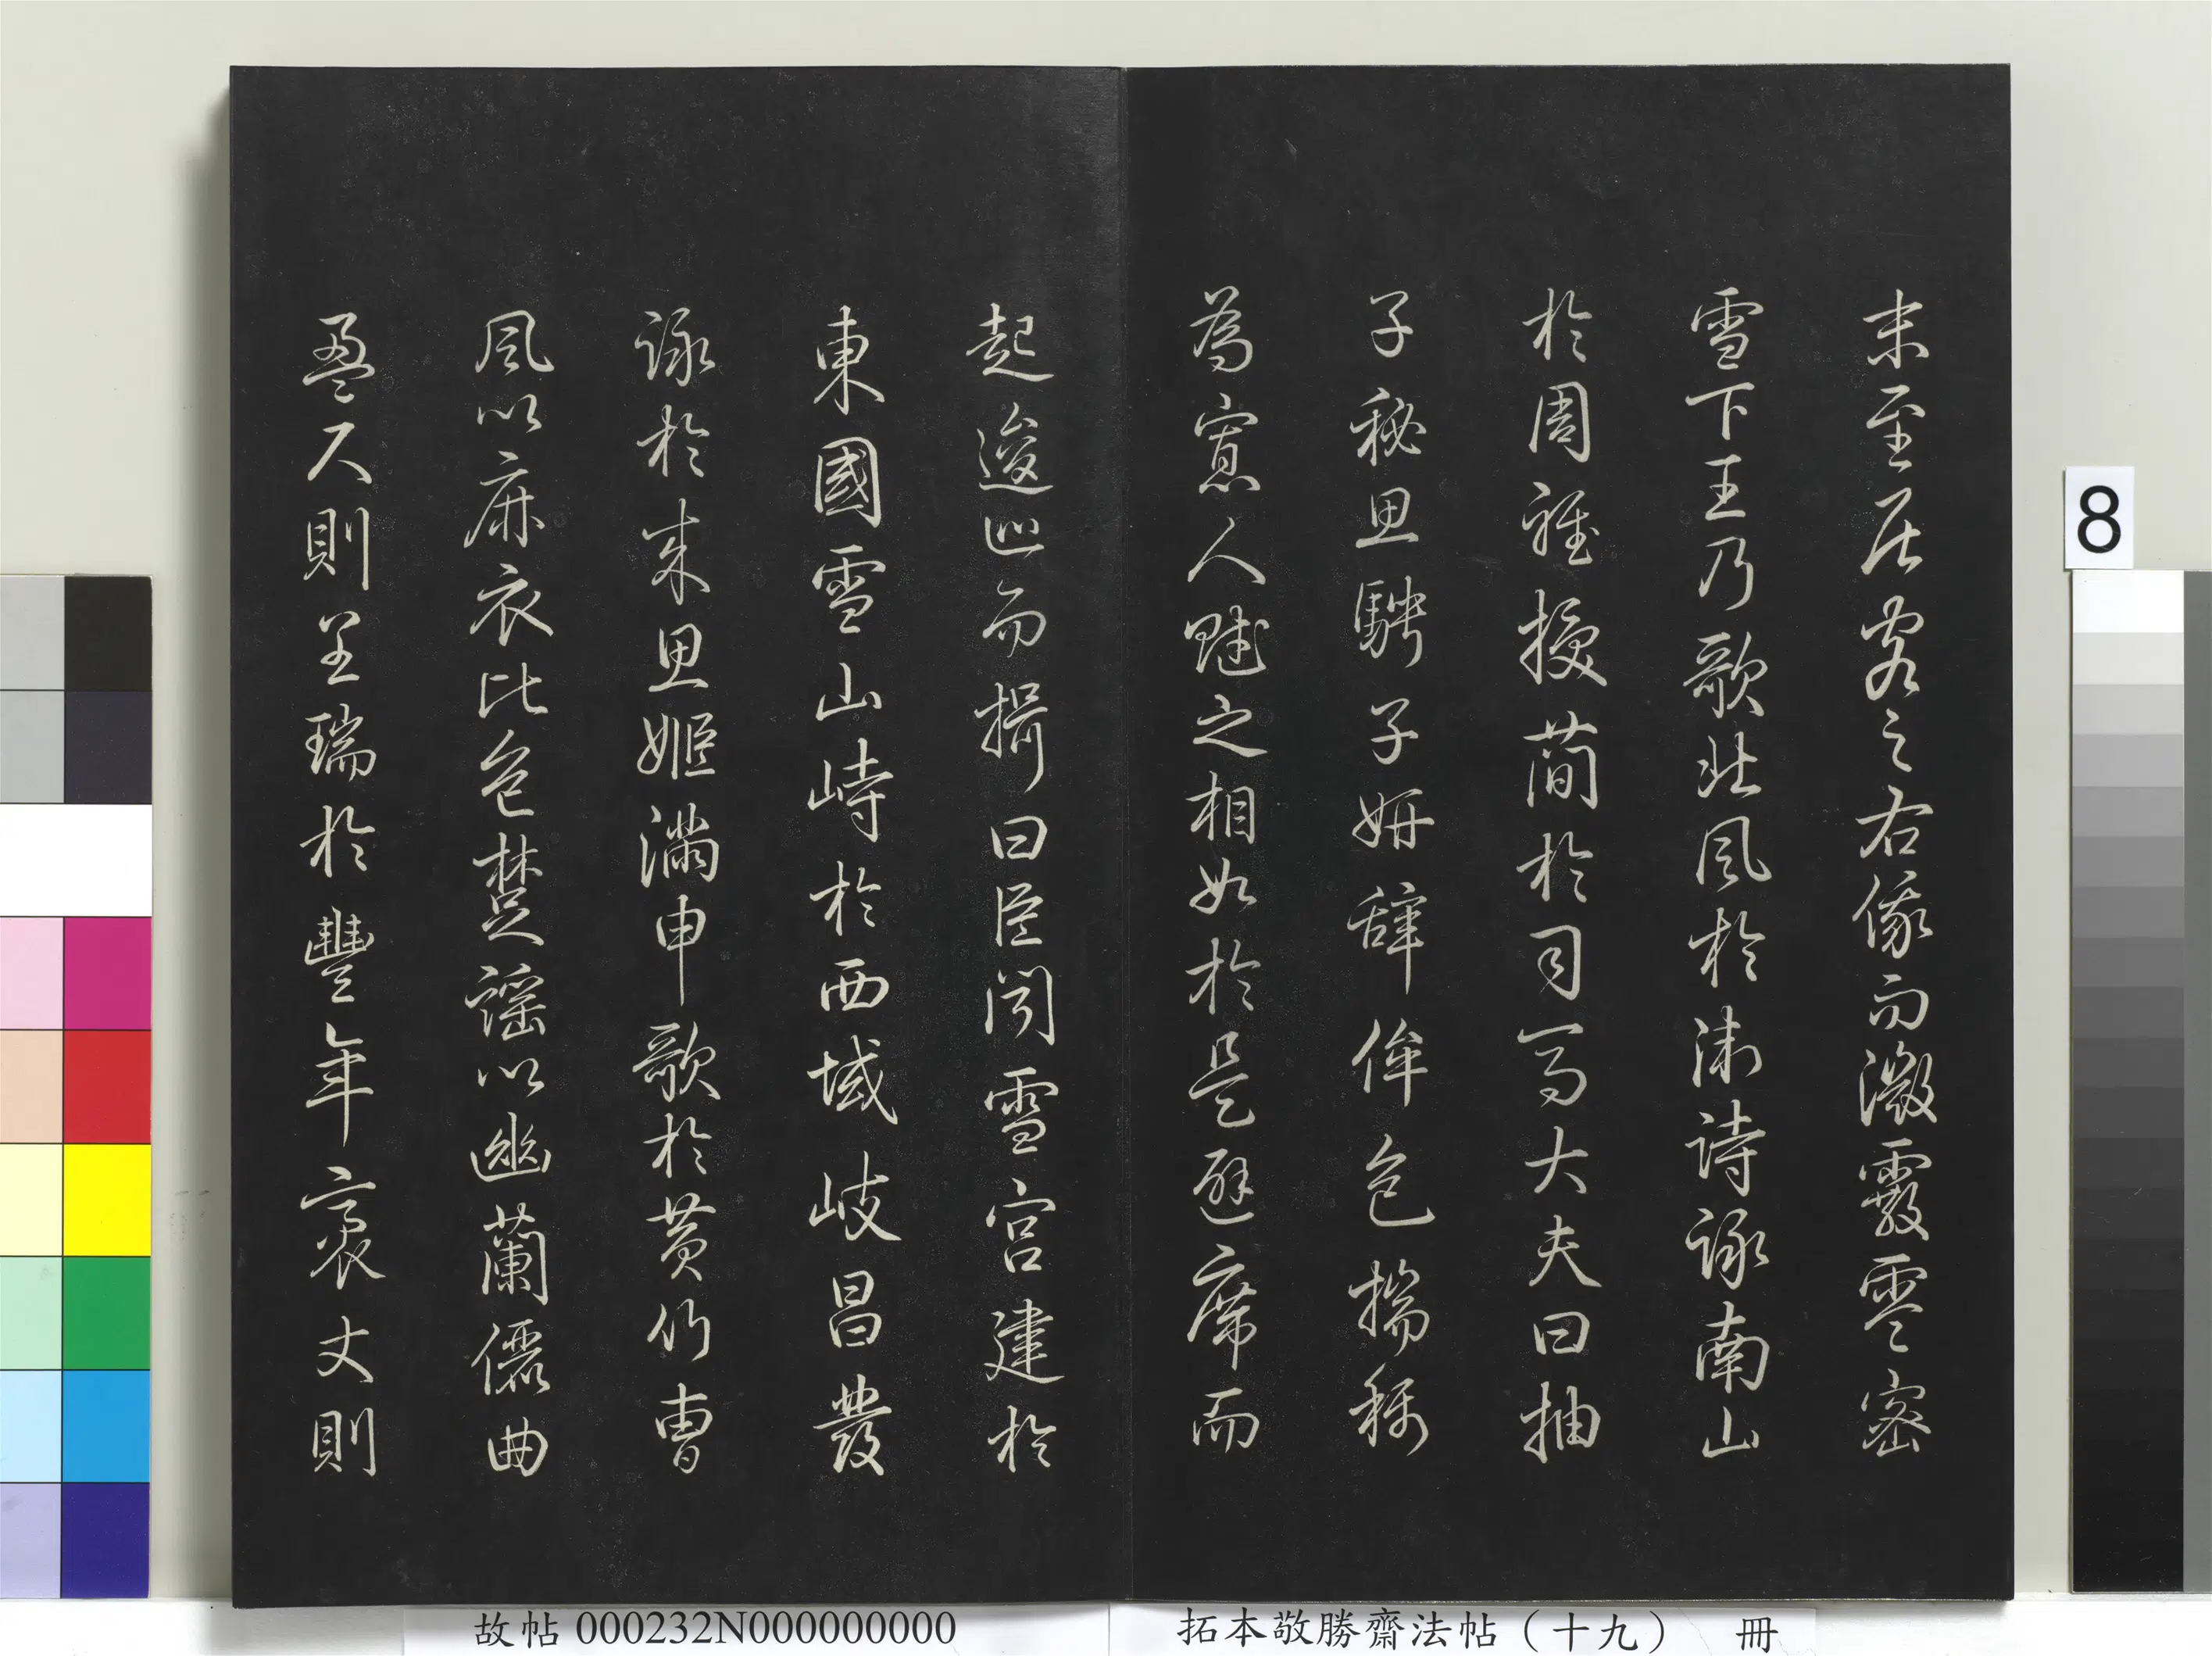 末至居客之右俄而激霰零密
雪下王乃歌北風於衛詩詠南山
於周雅授簡於司馬大夫曰抽
子秘思騁子妍辭侔色揣稱
為寡人賦之相如於是避席而
起逡巡而揖曰臣聞雪宮建於
東國雪山峙於西域岐昌發
詠於來思姬滿申歌於黃竹曹
風以麻衣比色楚謠以幽蘭儷曲
盈尺則呈瑞於豐年袤丈則
8
故帖 000232N000000000
拓本敬勝齋法帖（十九） 冊